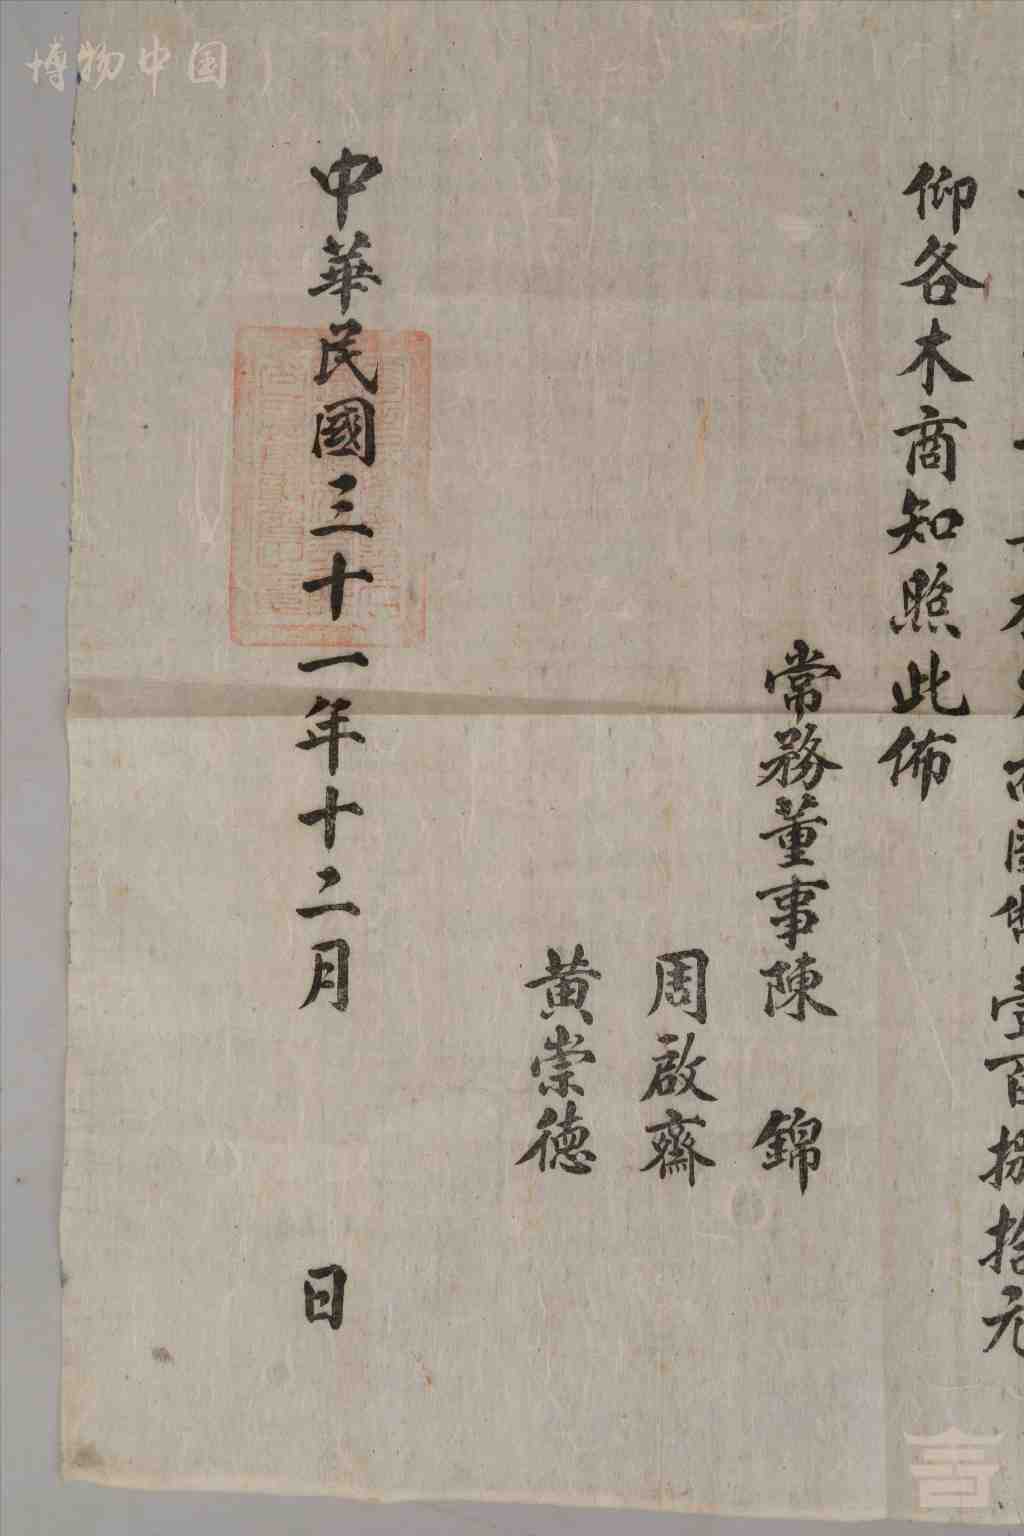 壹百捌拾元
仰各木商知照此佈
常務董事陳　錦
周啟齋
黄崇德
中華民國三十一年十二月　日
博物中国